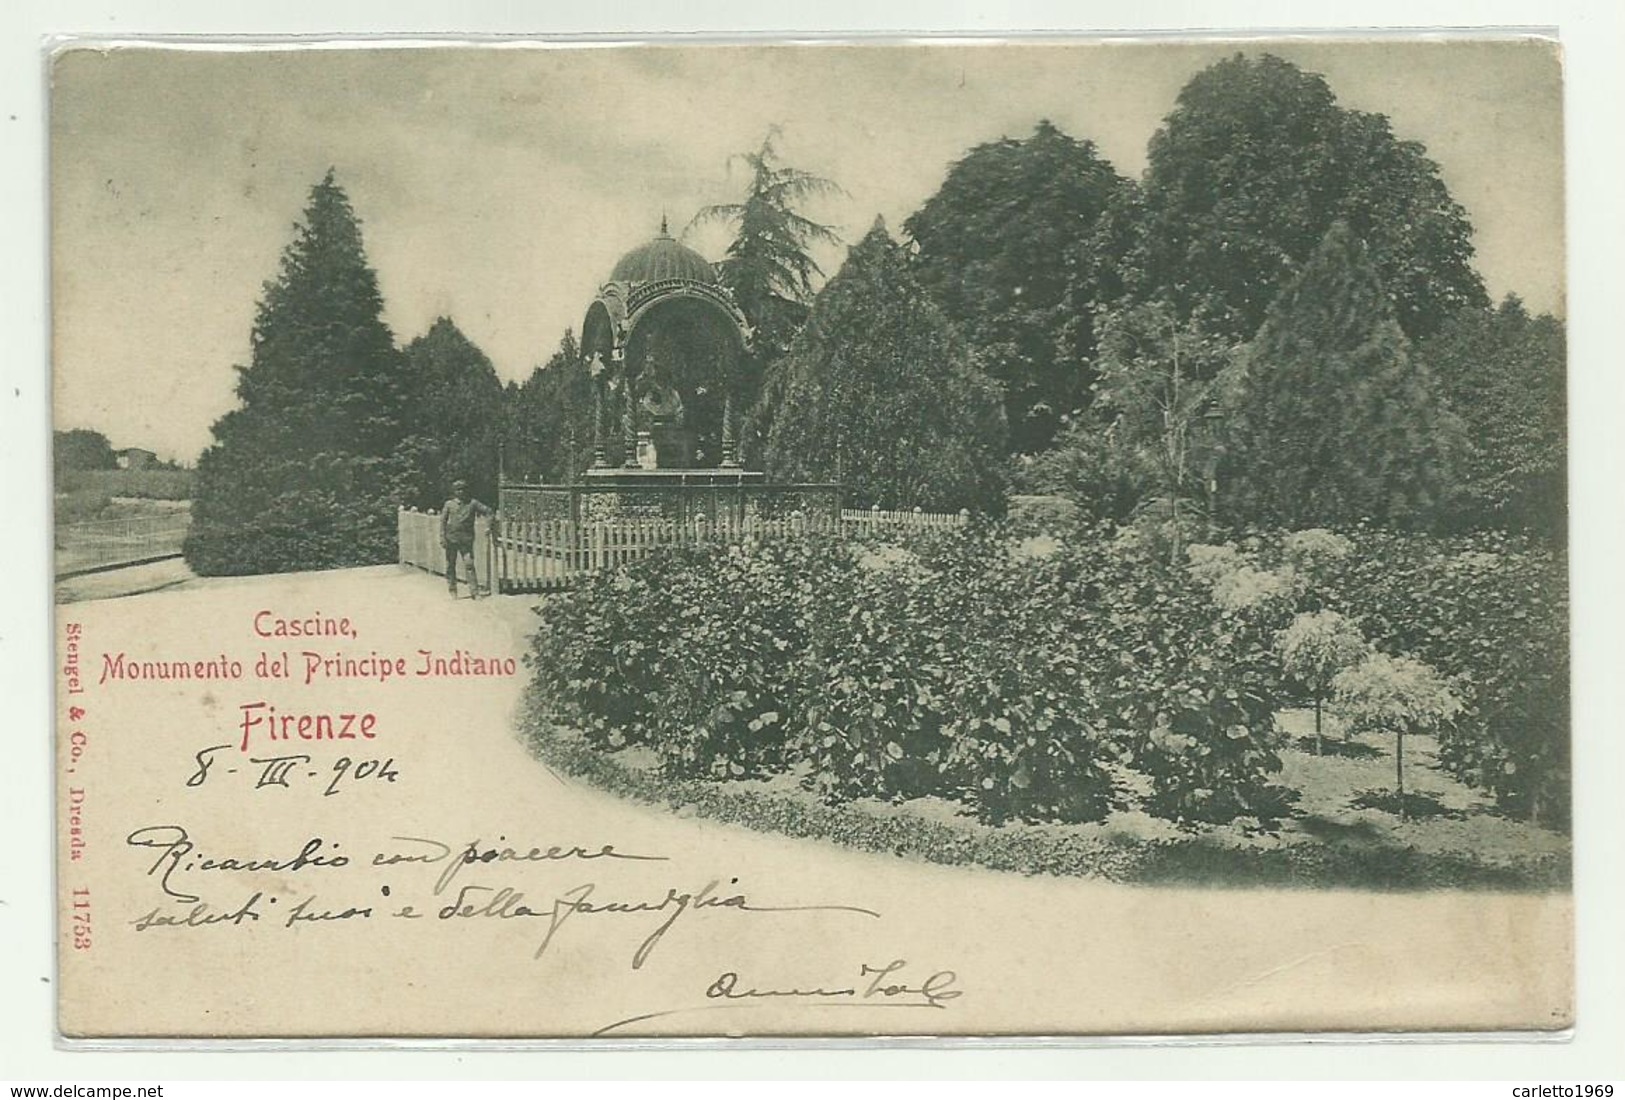 Cascine,
Monumento del Principe Indiano
Firenze
8-III-904
Ricambio con piacere
saluti suoi e della famiglia
Annibale
Stengel & Co., Dresda 11753
www.delcampe.net
carletto1969